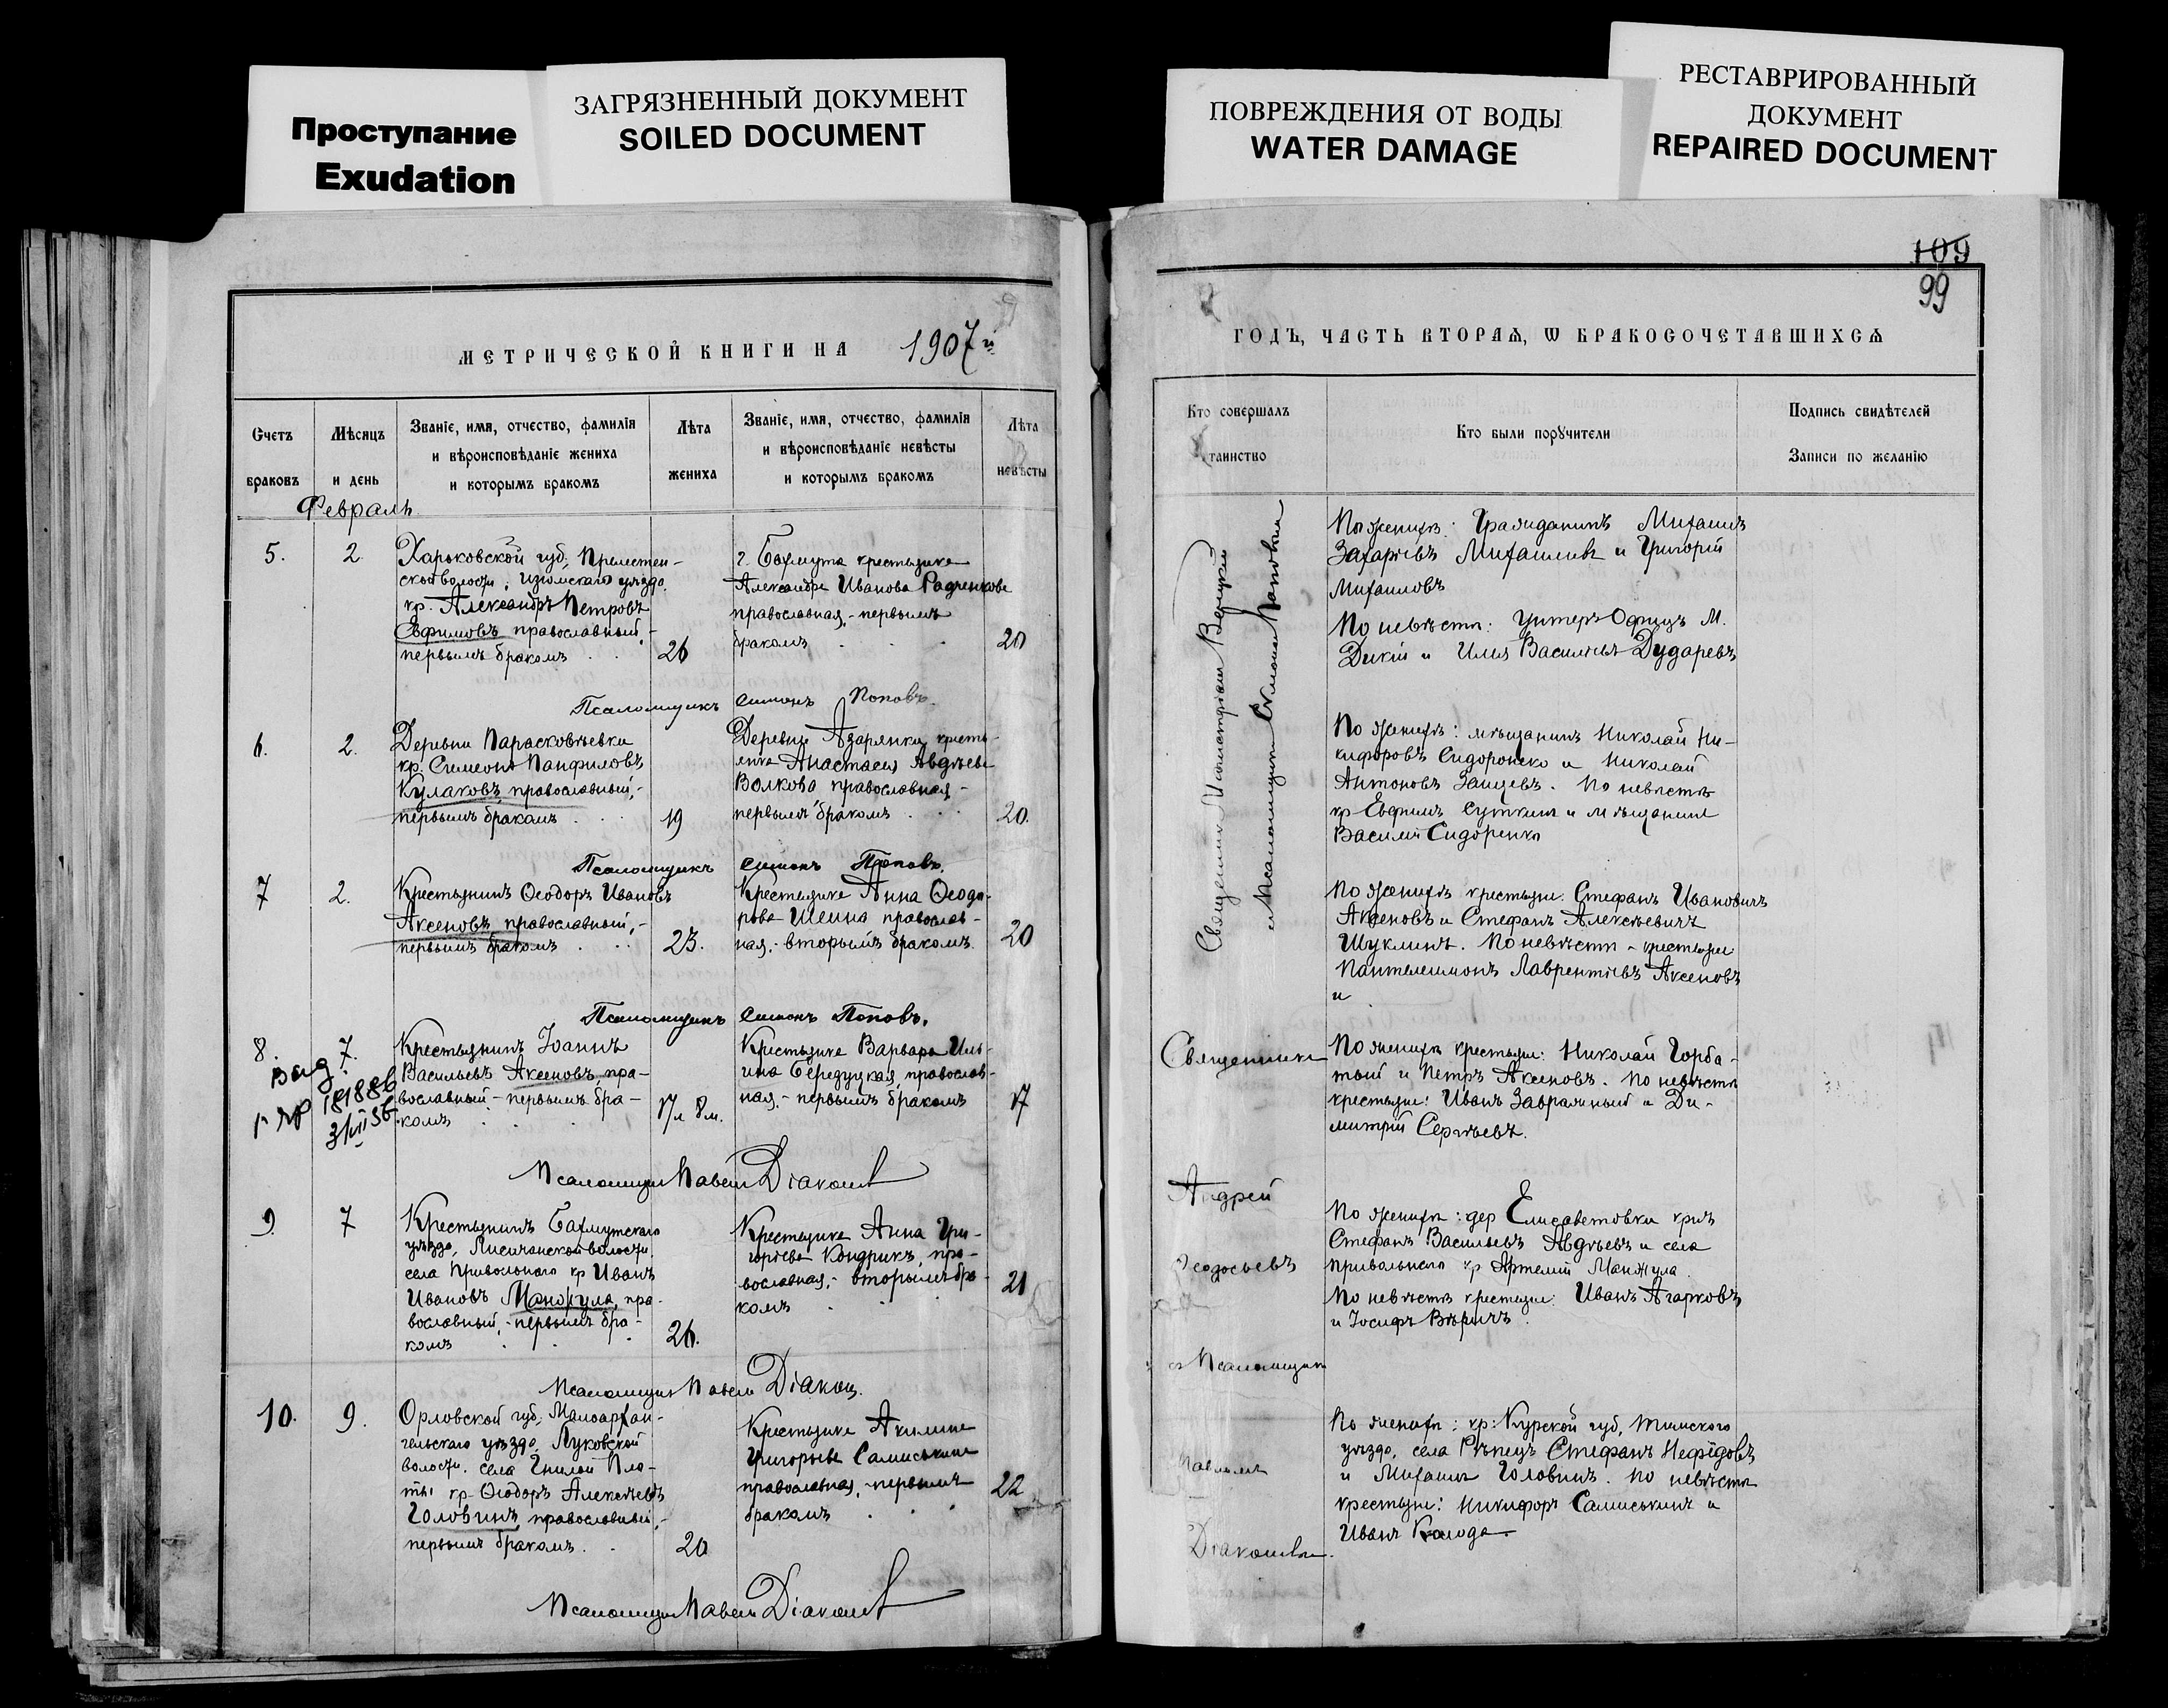 Проступание
Exudation
ЗАГРЯЗНЕННЫЙ ДОКУМЕНТ
SOILED DOCUMENT
ПОВРЕЖДЕНИЯ ОТ ВОДЫ
WATER DAMAGE
РЕСТАВРИРОВАННЫЙ
ДОКУМЕНТ
REPAIRED DOCUMENT
МЕТРИЧЕСКОЙ КНИГИ НА 1907 й
Счетъ
браковъ
Мѣсяцъ
и день
Званіе, имя, отчество, фамилія
и вѣроисповѣданіе жениха
и которымъ бракомъ
Лѣта
жениха
Званіе, имя, отчество, фамилія
и вѣроисповѣданіе невѣсты
и которымъ бракомъ
Лѣта
невѣсты
Февраль
5.
2
Харьковской губ,
волости, Изюмскаго уѣзда
кр. Александръ Петровъ
Ефимовъ, православный,-
первымъ бракомъ
26
г. Бахмута крестьянка
Александра Иванова Радченкова
православная,- первымъ
бракомъ
20
Псаломщикъ Симонъ Поповъ.
6.
2.
Деревни Парасковѣевки
кр. Симеонъ Панфиловъ
Кулаковъ, православный,-
первымъ бракомъ
19
Деревни кресть-
янка Анастасия Авдѣева
Волкова православная,-
первымъ бракомъ
20.
Псаломщикъ Симонъ Поповъ.
7
2.
Крестьянинъ Ѳеодоръ Ивановъ
Аксеновъ, православный,-
первымъ бракомъ
23.
Крестьянка Анна Ѳеодо-
рова Шеина православ-
ная,- вторымъ бракомъ.
20
Псаломщикъ Симонъ Поповъ.
8.
7.
Крестьянинъ Іоаннъ
Васильевъ Аксеновъ, пра-
вославный - первымъ бра-
комъ
17 л 8 м.
Крестьянка Варвара Иль-
ина Бередуцкая, православ-
ная,- первымъ бракомъ
17
Псаломщикъ Павелъ Діаконовъ
9.
7
Крестьянинъ Бахмутскаго
уѣзда, Лисичанской волости,
села Привольнаго кр Иванъ
Ивановъ Манжула, пра-
вославный,- первымъ бра-
комъ
26.
Крестьянка Анна Гри-
горьева Кондрикъ, пра-
вославная,- вторымъ бра-
комъ
21
Псаломщикъ Павелъ Діакон.
10.
9.
Орловской губ, Малоархан-
гельскаго уѣзда, Луковской
волости, села Гнилой Пла-
ты кр Ѳеодоръ Алексѣевъ
Головинъ, православный,-
первымъ бракомъ.
20
Крестьянка Акилина
Григорьева Самиськина
православная,- первымъ
бракомъ
22
Псаломщикъ Павелъ Діаконовъ
109
99
ГОДЪ, ЧАСТЬ ВТОРАѦ, Ѡ БРАКОСОЧЕТАВШИХСѦ
Кто совершалъ
таинство
Кто были порꙋчители
Подпись свидѣтелей
Записи по желанію
Священникъ
и Псаломщикъ Симонъ Поповъ
По женихѣ: Гражданинъ Михаилъ
Захарьевъ Михайловъ и Григорій
Михаиловъ
По невѣстѣ: Унтеръ Офицъ М.
Дикій и Илья Васильевъ Дударевъ
По женихѣ: мѣщанинъ Николай Ни-
кифоровъ Сидоренко и Николай
Антоновъ Зайцевъ. По невѣстѣ
кр Ефимъ и мѣщанинъ
Василій Сидоренко
По женихѣ крестьяне: Стефанъ Ивановичъ
Аксеновъ и Стефанъ Алексѣевичъ
Шуклинъ. По невѣстѣ - крестьяне
Пантелеимонъ Лаврентьевъ Аксеновъ
и
Священникъ
Андрей
Ѳеодосьевъ
съ Псаломщикомъ
Павломъ
Діаконовымъ.
По женихѣ крестьяне: Николай Горба-
тый и Петръ Аксеновъ. По невѣстѣ
крестьяне: Иванъ Завражный и Ди-
митрій Сергѣевъ.
По женихѣ: дер Елисаветовки кр-нъ
Стефанъ Васильевъ Авдѣевъ и села
Привольнаго кр Артемій Манжула.
По невѣстѣ крестьяне: Иванъ Агарковъ
и Іосифъ
По женихѣ: кр: Курской губ, Тимскаго
уѣзда, села Рѣпецъ Стефанъ Нефедовъ
и Михаилъ Головинъ. По невѣстѣ
крестьяне: Никифоръ Самиськинъ и
Иванъ Колода